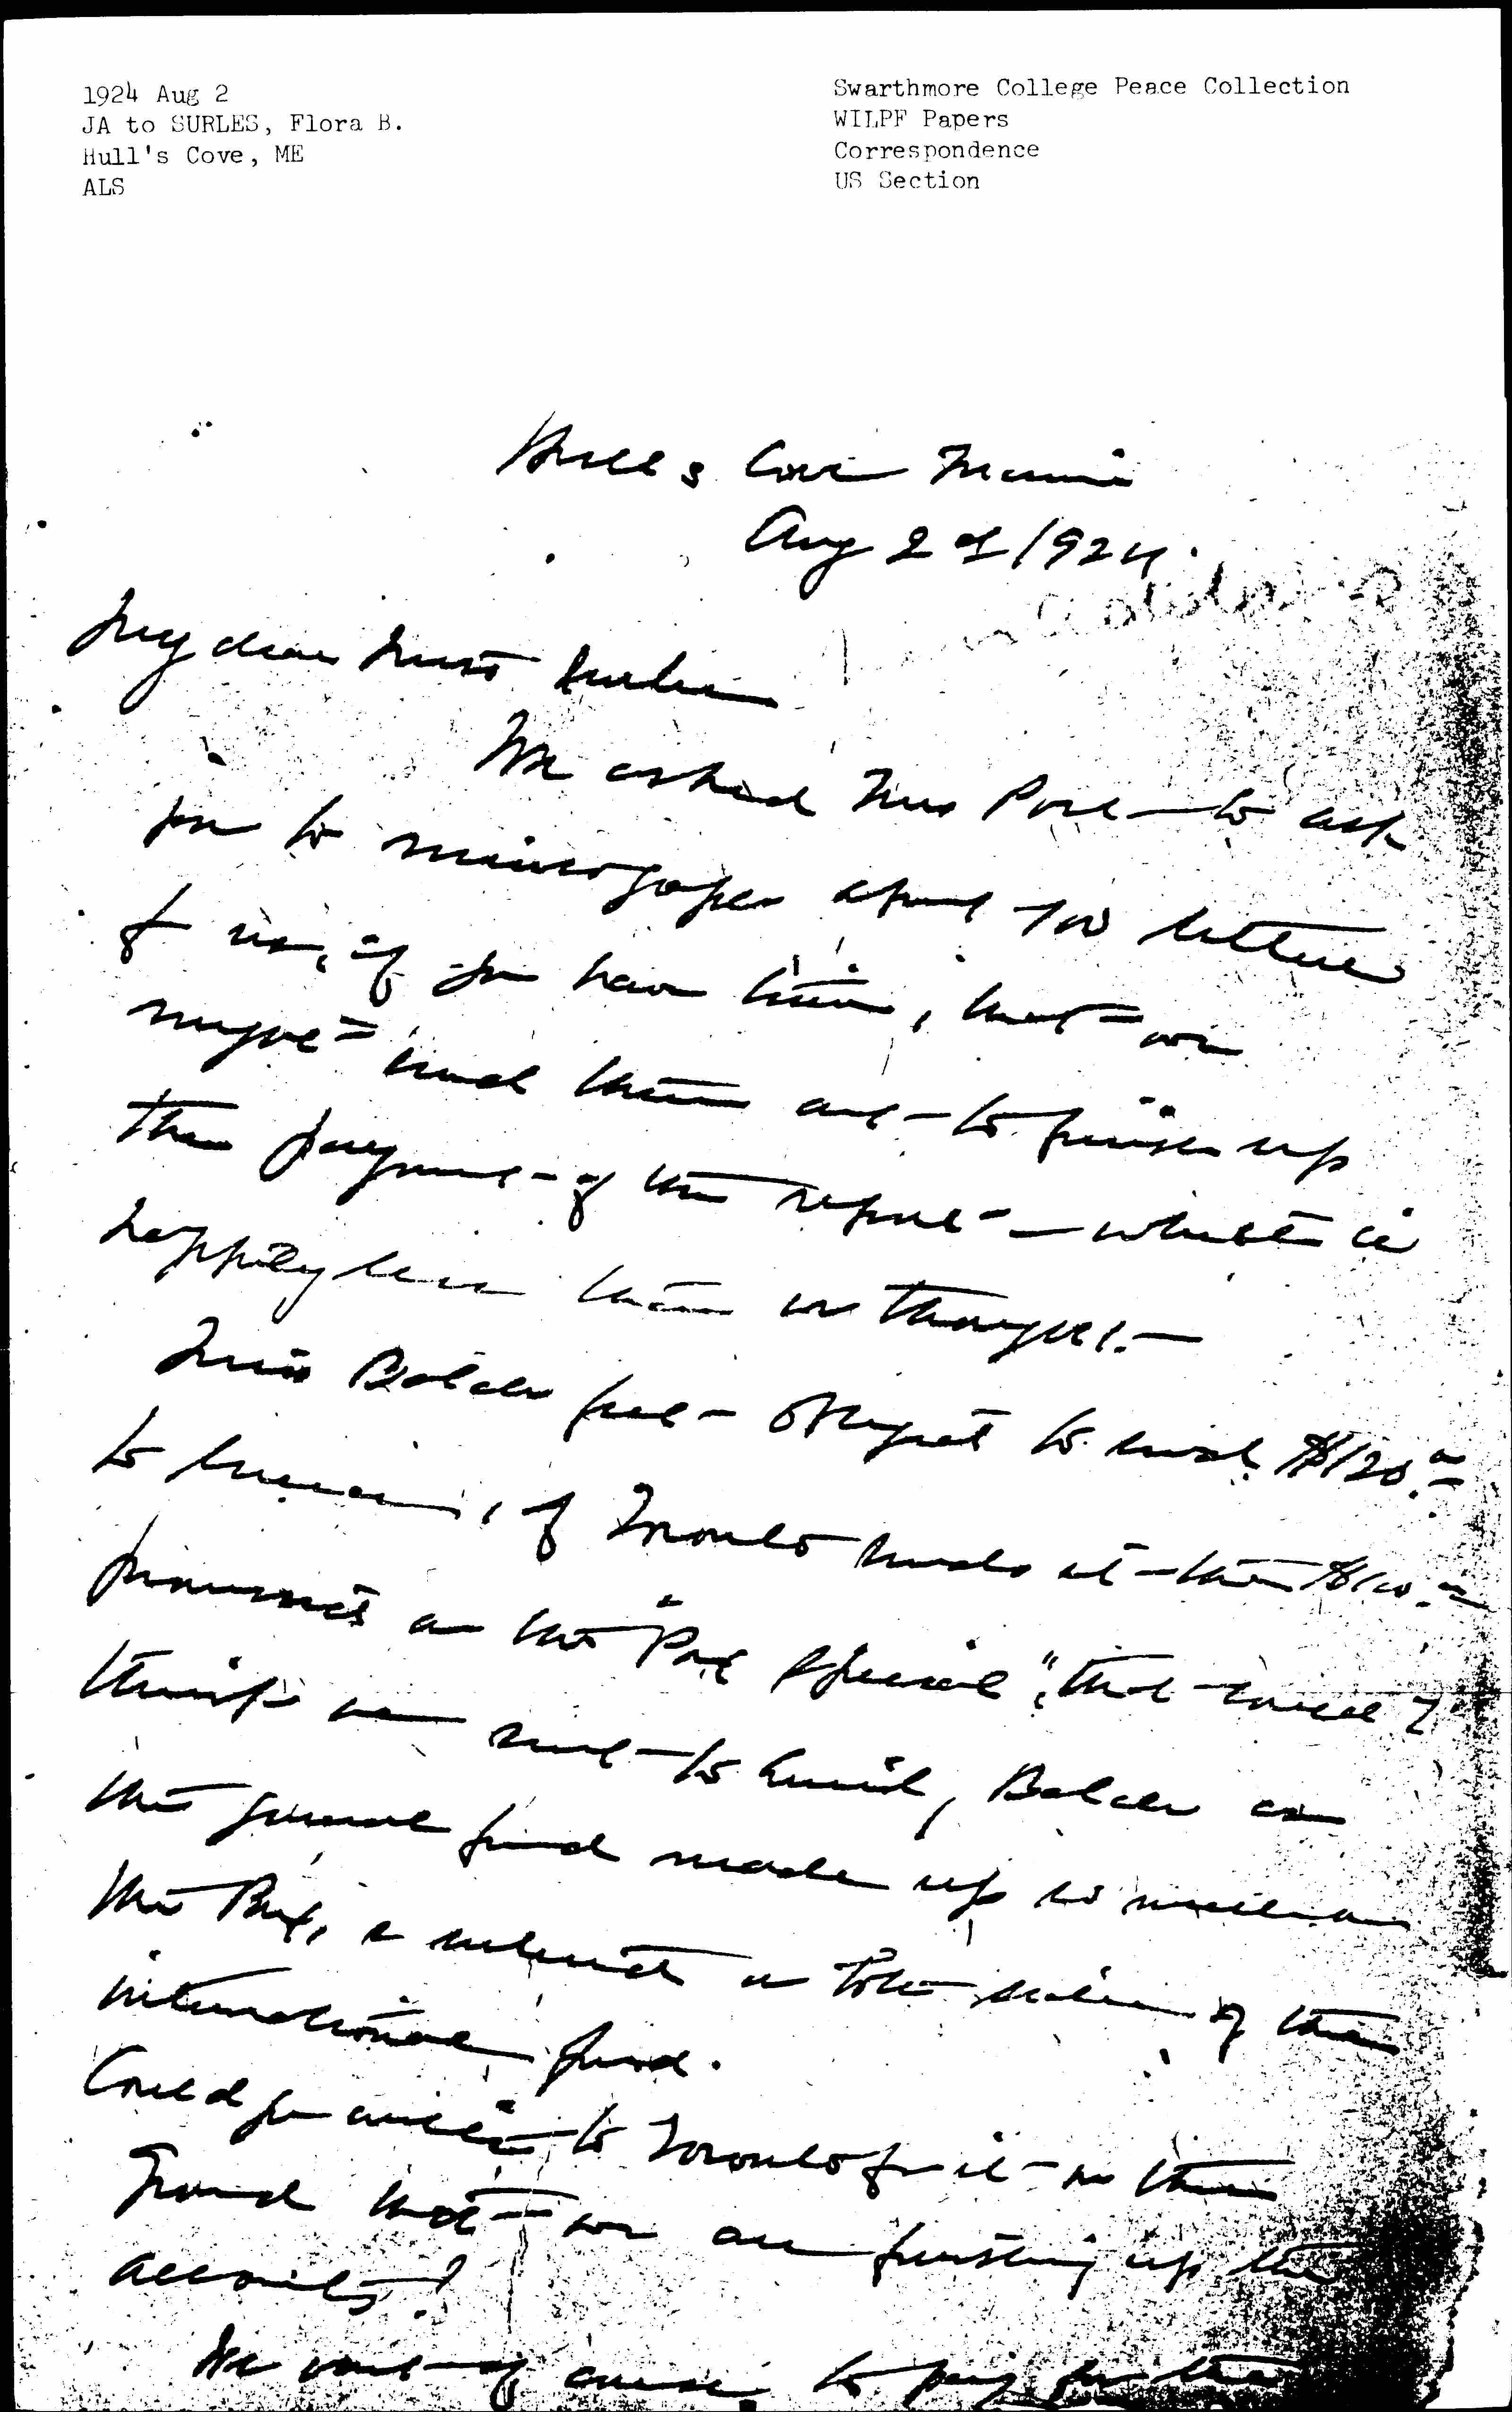 1924 Aug 2
JA to SURLES, Flora B.
Hull's Cove, ME
ALS
Swarthmore College Peace Collection
WILPF Papers
Correspondence
US Section
Hull's Cove Maine
Aug 2d 1924.
My dear Miss Surles
We asked Miss Post to ask
you to mimeograph about 100 letters
for us, if you have time, that we
might send them out to finish up
the payment of the report — which is
happily less than we thought.—
Miss Balch feels obliged to send $120.00
to Geneva, if Toronto sends us the $100.00
promised on the "Pax Special", that could I
think be sent to Emily Balch as
the general fund made up so much on
the Pax, & a of the
international fund.
Could you write to Toronto for it on the
ground that we are finishing up the
accounts?
We want of course to pay for the